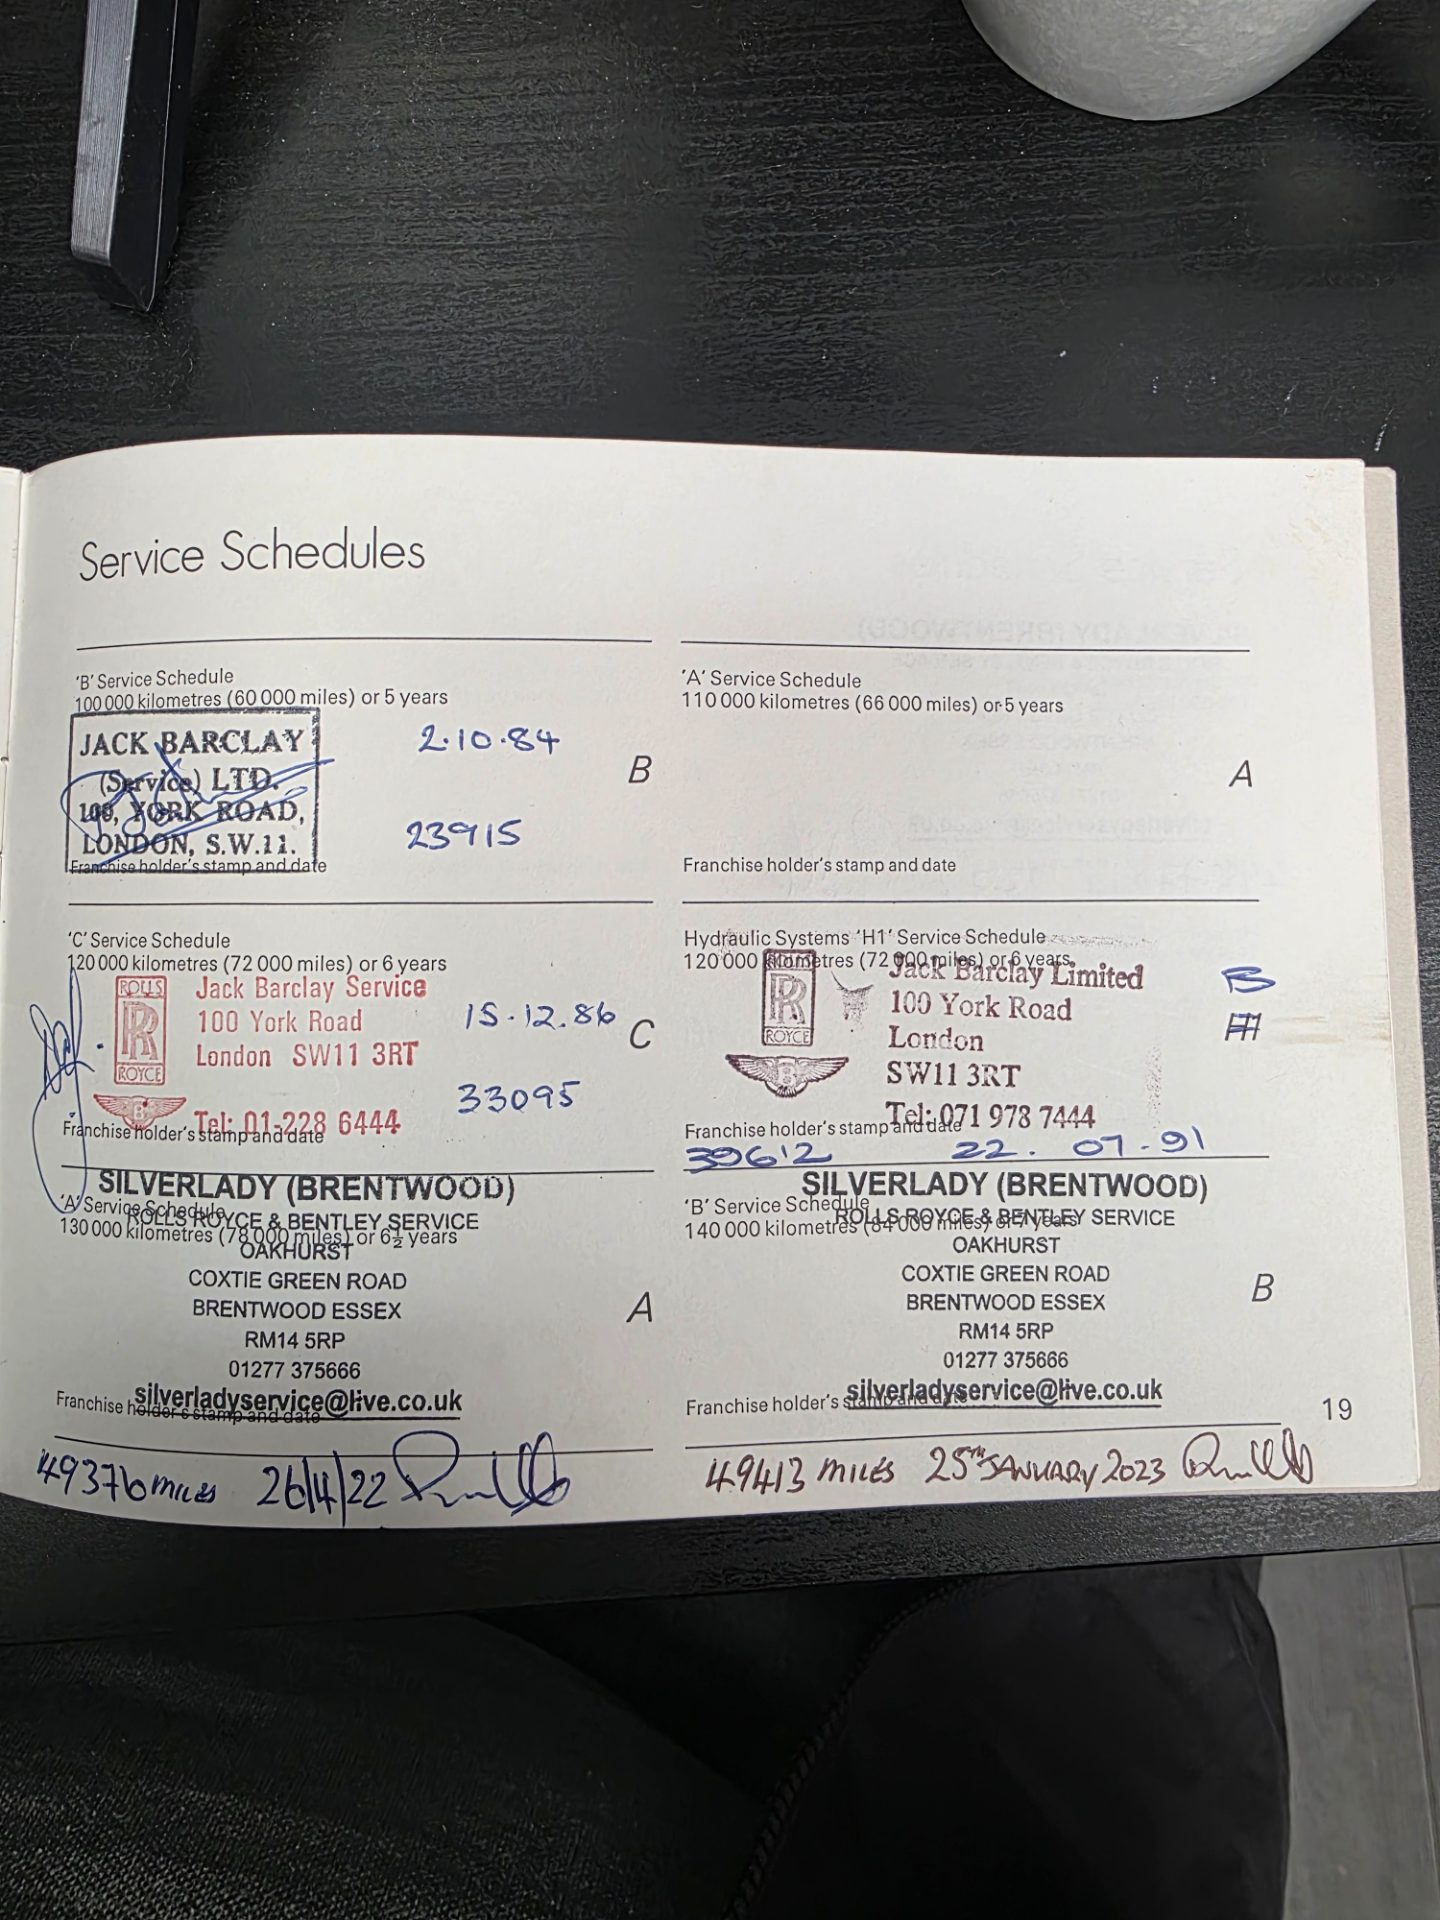 Service Schedules
'B' Service Schedule
100 000 kilometres (60 000 miles) or 5 years
JACK BARCLAY
(Service) LTD.
100, YORK ROAD,
LONDON, S.W.11.
2.10.84
B
23915
Franchise holder's stamp and date
'A' Service Schedule
110 000 kilometres (66 000 miles) or 5 years
A
Franchise holder's stamp and date
'C' Service Schedule
120 000 kilometres (72 000 miles) or 6 years
ROLLS
RR
ROYCE
B
Jack Barclay Service
100 York Road
London SW11 3RT
Tel: 01-228 6444
15.12.86
C
33095
Franchise holder's stamp and date
Hydraulic Systems 'H1' Service Schedule
120 000 kilometres (72 000 miles) or 6 years
RR
ROYCE
B
Jack Barclay Limited
100 York Road
London
SW11 3RT
Tel: 071 978 7444
B
Franchise holder's stamp and date
39612 22.07.91
'A' Service Schedule
130 000 kilometres (78 000 miles) or 6½ years
SILVERLADY (BRENTWOOD)
ROLLS ROYCE & BENTLEY SERVICE
OAKHURST
COXTIE GREEN ROAD
BRENTWOOD ESSEX
RM14 5RP
01277 375666
silverladyservice@live.co.uk
A
Franchise holder's stamp and date
49376 MILES 26/4/22
'B' Service Schedule
140 000 kilometres (84 000 miles) or 7 years
SILVERLADY (BRENTWOOD)
ROLLS ROYCE & BENTLEY SERVICE
OAKHURST
COXTIE GREEN ROAD
BRENTWOOD ESSEX
RM14 5RP
01277 375666
silverladyservice@live.co.uk
B
Franchise holder's stamp and date
49413 MILES 25TH JANUARY 2023
19